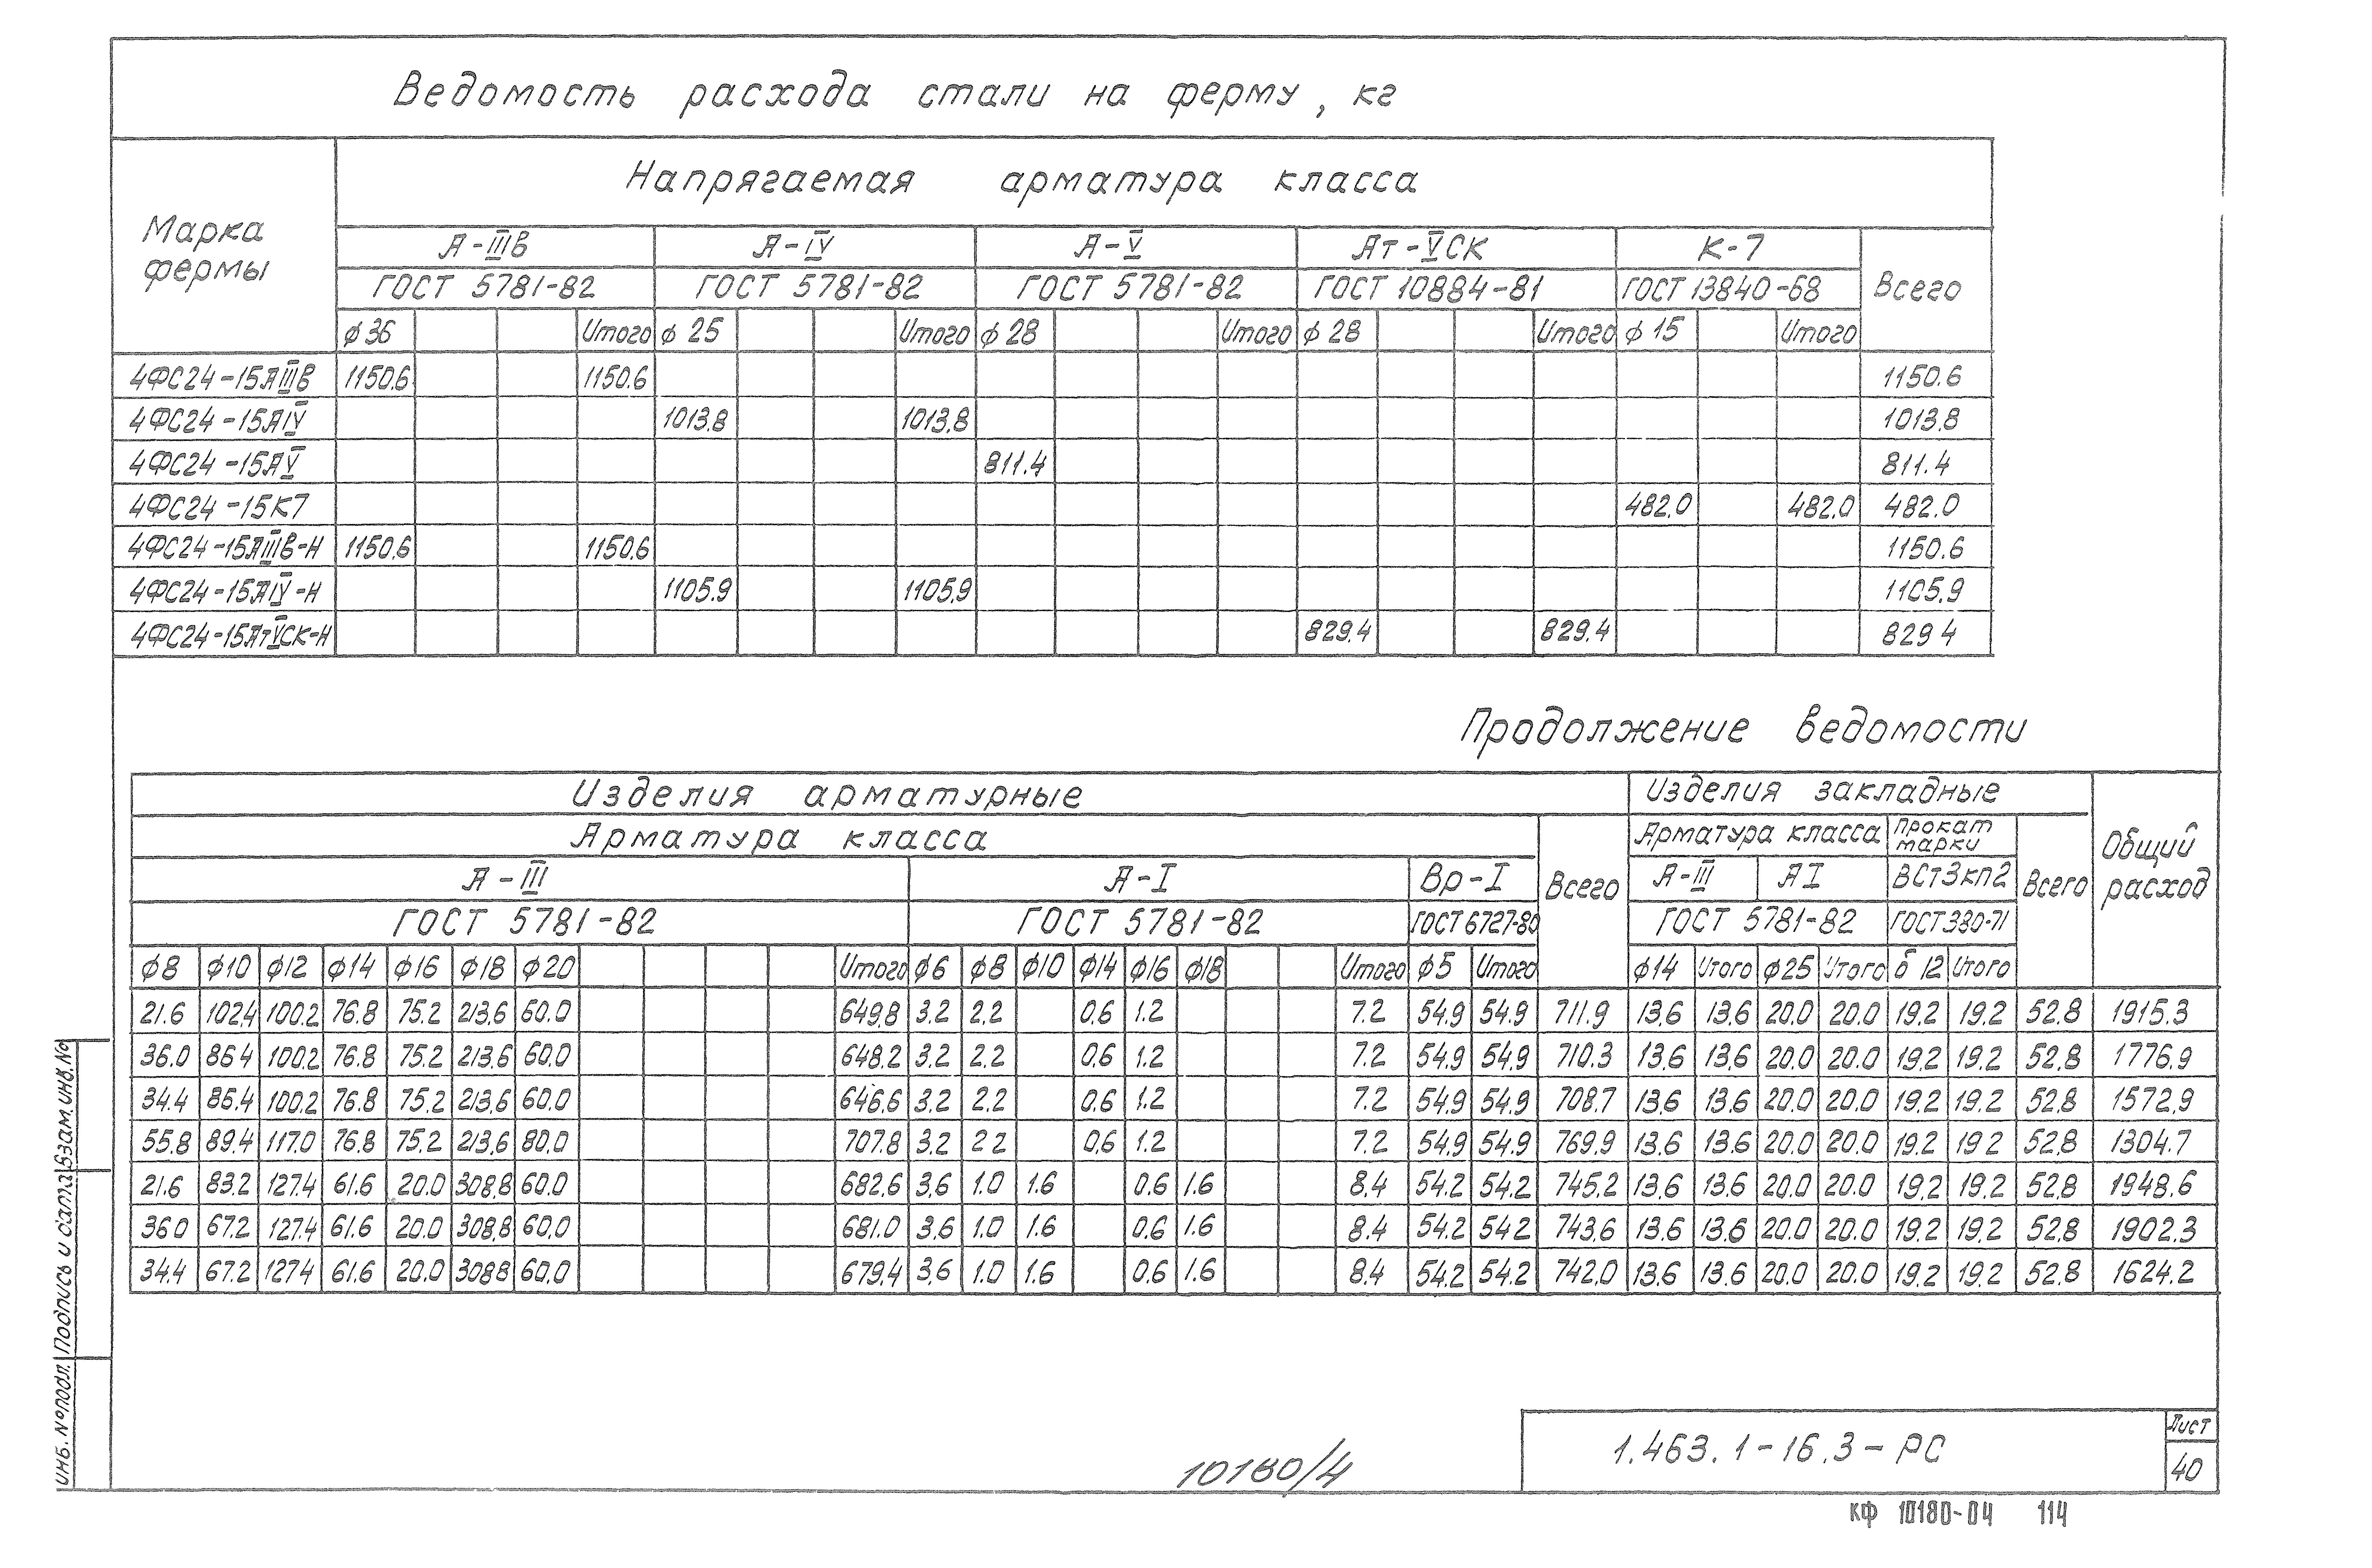 Ведомость расхода стали на ферму, кг
Марка фермы
Напрягаемая арматура класса
А-IIIв А-IV А-V Ат-VСК К-7 Всего
ГОСТ 5781-82 ГОСТ 5781-82 ГОСТ 5781-82 ГОСТ 10884-81 ГОСТ 13840-68
ф36 Итого ф25 Итого ф28 Итого ф28 Итого ф15 Итого
4ФС24-15АIIIв 1150.6 1150.6 1150.6
4ФС24-15АIV 1013.8 1013.8 1013.8
4ФС24-15АV 811.4 811.4
4ФС24-15К7 482.0 482.0 482.0
4ФС24-15АIIIв-Н 1150.6 1150.6 1150.6
4ФС24-15АIV-Н 1105.9 1105.9 1105.9
4ФС24-15АтVСК-Н 829.4 829.4 829 4
Продолжение ведомости
Изделия арматурные Изделия закладные Общий расход
Арматура класса Всего Арматура класса Прокат марки Всего
А-III А-I Вр-I А-III АI ВСт3кп2
ГОСТ 5781-82 ГОСТ 5781-82 ГОСТ 6727-80 ГОСТ 5781-82 ГОСТ 380-71
ф8 ф10 ф12 ф14 ф16 ф18 ф20 Итого ф6 ф8 ф10 ф14 ф16 ф18 Итого ф5 Итого ф14 Итого ф25 Итого δ 12 Итого
21.6 102.4 100.2 76.8 75.2 213.6 60.0 649.8 3.2 2.2 0.6 1.2 7.2 54.9 54.9 711.9 13.6 13.6 20.0 20.0 19.2 19.2 52.8 1915.3
36.0 86.4 100.2 76.8 75.2 213.6 60.0 648.2 3.2 2.2 0.6 1.2 7.2 54.9 54.9 710.3 13.6 13.6 20.0 20.0 19.2 19.2 52.8 1776.9
34.4 86.4 100.2 76.8 75.2 213.6 60.0 646.6 3.2 2.2 0.6 1.2 7.2 54.9 54.9 708.7 13.6 13.6 20.0 20.0 19.2 19.2 52.8 1572.9
55.8 89.4 117.0 76.8 75.2 213.6 80.0 707.8 3.2 2 2 0.6 1.2 7.2 54.9 54.9 769.9 13.6 13.6 20.0 20.0 19.2 19 2 52.8 1304.7
21.6 83.2 127.4 61.6 20.0 308.8 60.0 682.6 3.6 1.0 1.6 0.6 1.6 8.4 54.2 54.2 745.2 13.6 13.6 20.0 20.0 19.2 19.2 52.8 1948.6
36 0 67.2 127.4 61.6 20.0 308.8 60.0 681.0 3.6 1.0 1.6 0.6 1.6 8.4 54.2 54 2 743.6 13.6 13.6 20.0 20.0 19.2 19.2 52.8 1902.3
34.4 67.2 127 4 61.6 20.0 308 8 60.0 679.4 3.6 1.0 1.6 0.6 1.6 8.4 54.2 54.2 742.0 13.6 13.6 20.0 20.0 19.2 19.2 52.8 1624.2
Инв. № подл. Подпись и дата Взам. инв. №
10180/4
1.463.1-16.3-РС
Лист
40
КФ 10180-04 114